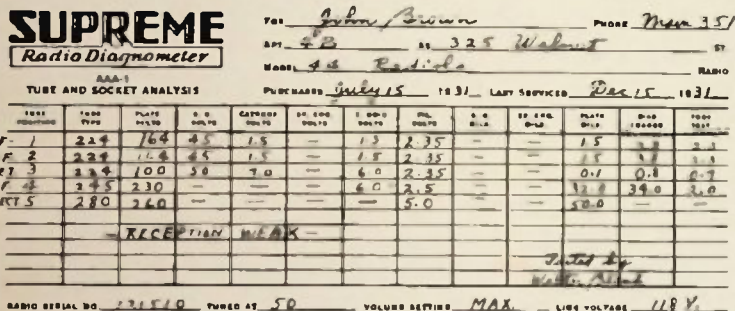 SUPREME
Radio Diagnometer
AAA-1
TUBE AND SOCKET ANALYSIS
FOR John Brown PHONE Main 351
APT. 4B AT 325 Walnut ST
MODEL 44 Radiola RADIO
PURCHASED July 15 1931 LAST SERVICED Dec 15 1931
TUBE POSITION TUBE TYPE PLATE VOLTS S.G. VOLTS CATHODE VOLTS VOLTS VOLTS FIL. VOLTS PLATE TUBE TEST
1 224 164 45 1.5 — 1.5 2.35 — — 1.5
2 224 164 45 1.5 — 1.5 2.35 — — 1.5
3 224 100 50 7.0 — 6.0 2.35 — — 0.1 0.8
4 245 230 — — — 6.0 2.5 — — 32.0 34.0 2.0
RECT 5 280 260 — — — — 5.0 — — 50.0 — —
RECEPTION WEAK
Tested by
RADIO SERIAL NO. 171510 TUNED AT 50 VOLUME SETTING MAX. LINE VOLTAGE 118 V.